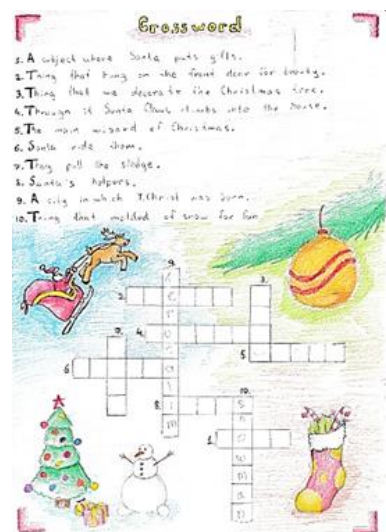 Crossword
1. A object where Santa puts gifts.
2. Thing that hung on the front door for beauty.
3. Thing that we decorate the Christmas tree.
4. Through it Santa Claus climbs into the house.
5. The main wizard of Christmas.
6. Santa ride them.
7. They pull the sledge.
8. Santa's helpers.
9. A city in which J.Christ was born.
10. Thing that molded of snow for fun
9.
3.
2.
7.
4.
5.
6.
10.
8.
1.
snowman